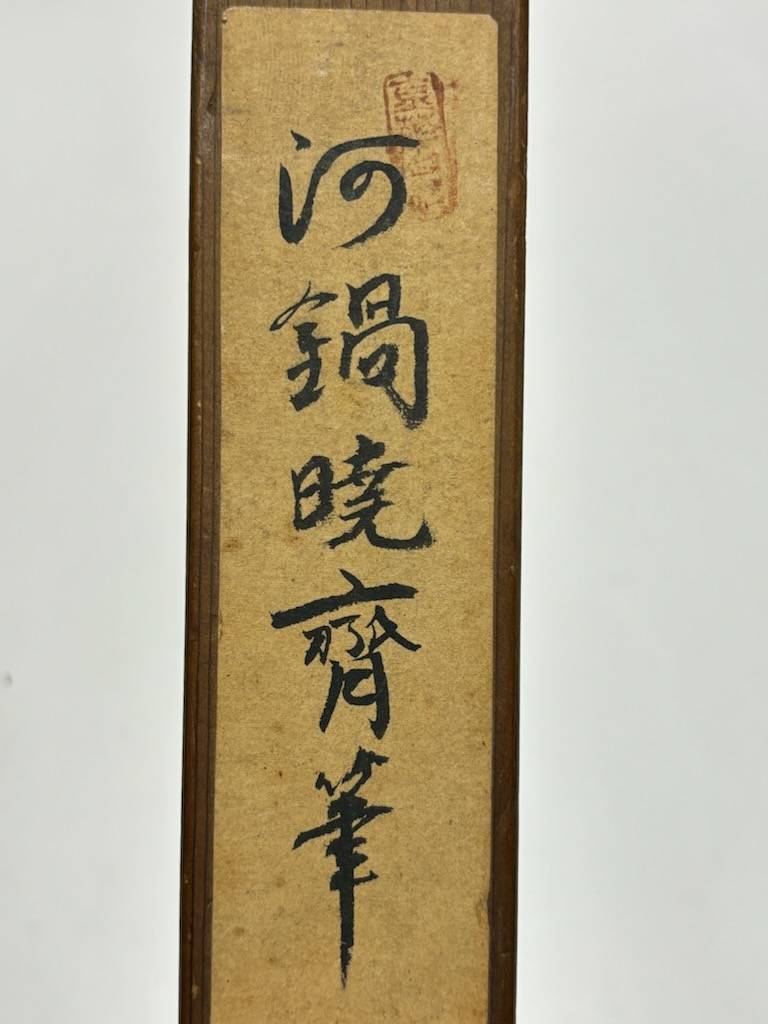 河鍋暁齋筆